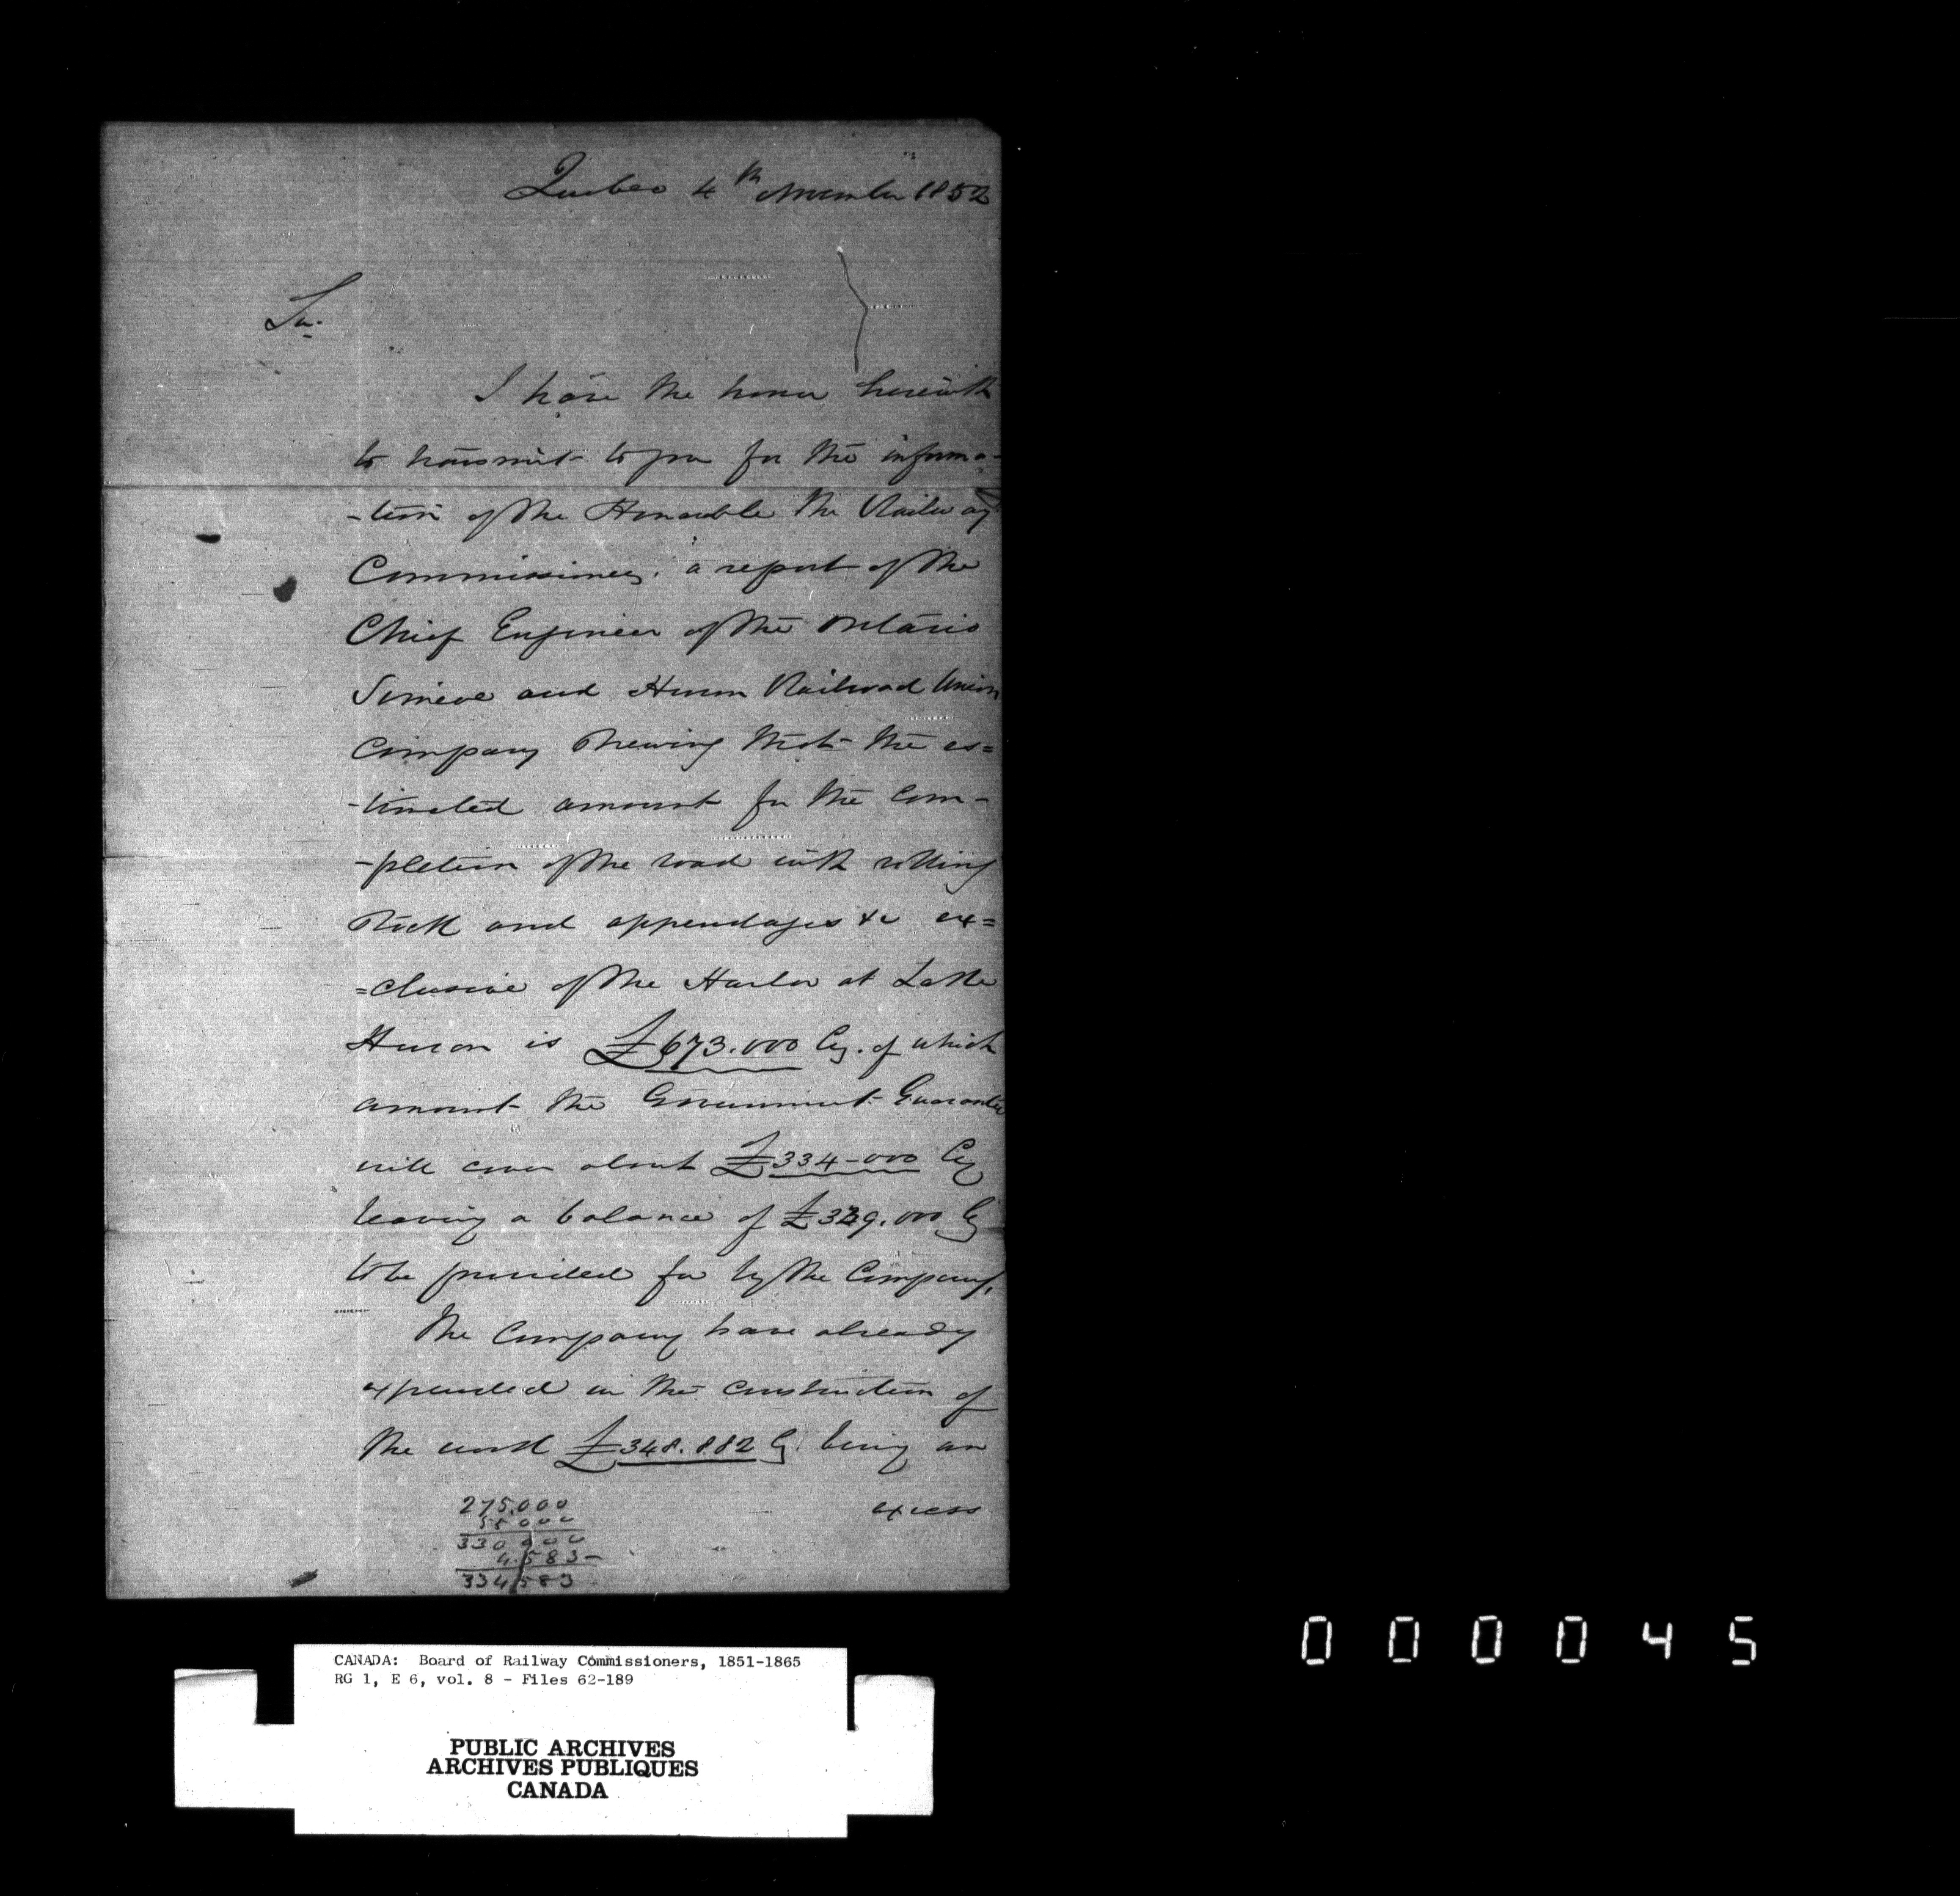 Quebec 4th November 1852
Sir.
I have the honor herewith
to transmit to you for the informa-
-tion of the Honorable the Railway
Commissioners. a report of the
Chief Engineer of the Ontario
Simcoe and Huron Railroad Union
Company Shewing that the es=
-timated amount for the Com-
-pletion of the road with rolling
Stock and appendages &c ex=
=clusive of the Harbor at Lake
Huron is £673.000 Cy. of which
amount the Government Guarantee
will cover about £334-000 Cy
leaving a balance of £339.000 Cy
to be provided for by the Company.
The Company have already
expended in the Construction of
the work £348.882 Cy. being an
excess
275.000
55000
330000
4.583-
334583
CANADA: Board of Railway Commissioners, 1851-1865
RG 1, E 6, vol. 8 - Files 62-189
PUBLIC ARCHIVES
ARCHIVES PUBLIQUES
CANADA
000045